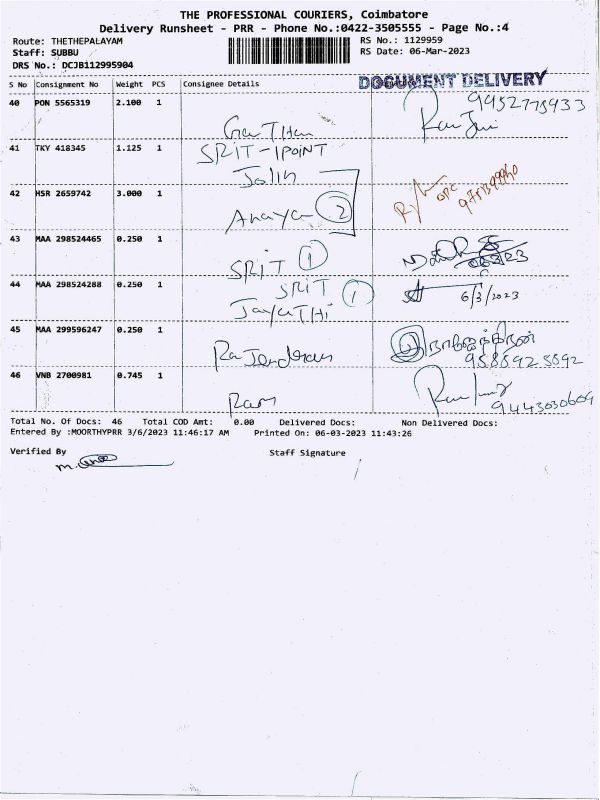 THE PROFESSIONAL COURIERS, Coimbatore
Delivery Runsheet - PRR - Phone No.:0422-3505555 - Page No.:4
Route: THETHEPALAYAM RS No.: 1129959
Staff: SUBBU RS Date: 06-Mar-2023
DRS No.: DCJB112995904
DOCUMENT DELIVERY
S No Consignment No Weight PCS Consignee Details
40 PON 5565319 2.100 1 9952775933
41 TKY 418345 1.125 1 SRIT - IPOINT
Jolin
42 HSR 2659742 3.000 1 Anaya 2
43 MAA 298524465 0.250 1 SRIT 1
44 MAA 298524288 0.250 1 SRIT 1 6/3/2023
JayaTHi
45 MAA 299596247 0.250 1 RaJendran
46 VNB 2700981 0.745 1 Ram
Total No. Of Docs: 46 Total COD Amt: 0.00 Delivered Docs: Non Delivered Docs:
Entered By :MOORTHYPRR 3/6/2023 11:46:17 AM Printed On: 06-03-2023 11:43:26
Verified By Staff Signature